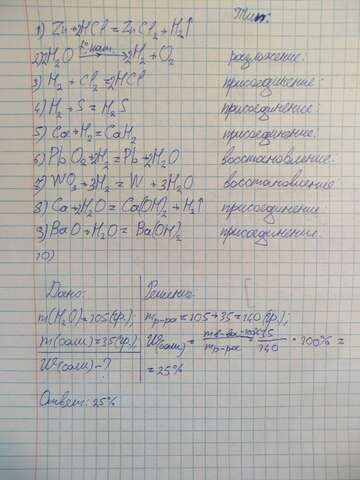 Тип:
1) Zn+2HCl = ZnCl₂ + H₂↑
2) 2H₂O эл.ток → 2H₂ + O₂ разложение:
3) H₂ + Cl₂ = 2HCl присоединение:
4) H₂ + S = H₂S присоединение:
5) Ca + H₂ = CaH₂ присоединение:
6) PbO₂ + 2H₂ = Pb + 2H₂O восстановление:
7) WO₃ + 3H₂ = W + 3H₂O восстановление:
8) Ca + 2H₂O = Ca(OH)₂ + H₂↑ присоединение:
9) BaO + H₂O = Ba(OH)₂ присоединение:
10)
Дано: Решение:
m(H₂O) = 105(гр.); mр-ра = 105 + 35 = 140(гр.);
m(соли) = 35(гр.) W(соли) = mв-ва·100% / mр-ра = 35 / 140 · 100% =
W(соли) - ? = 25%
Ответ: 25%